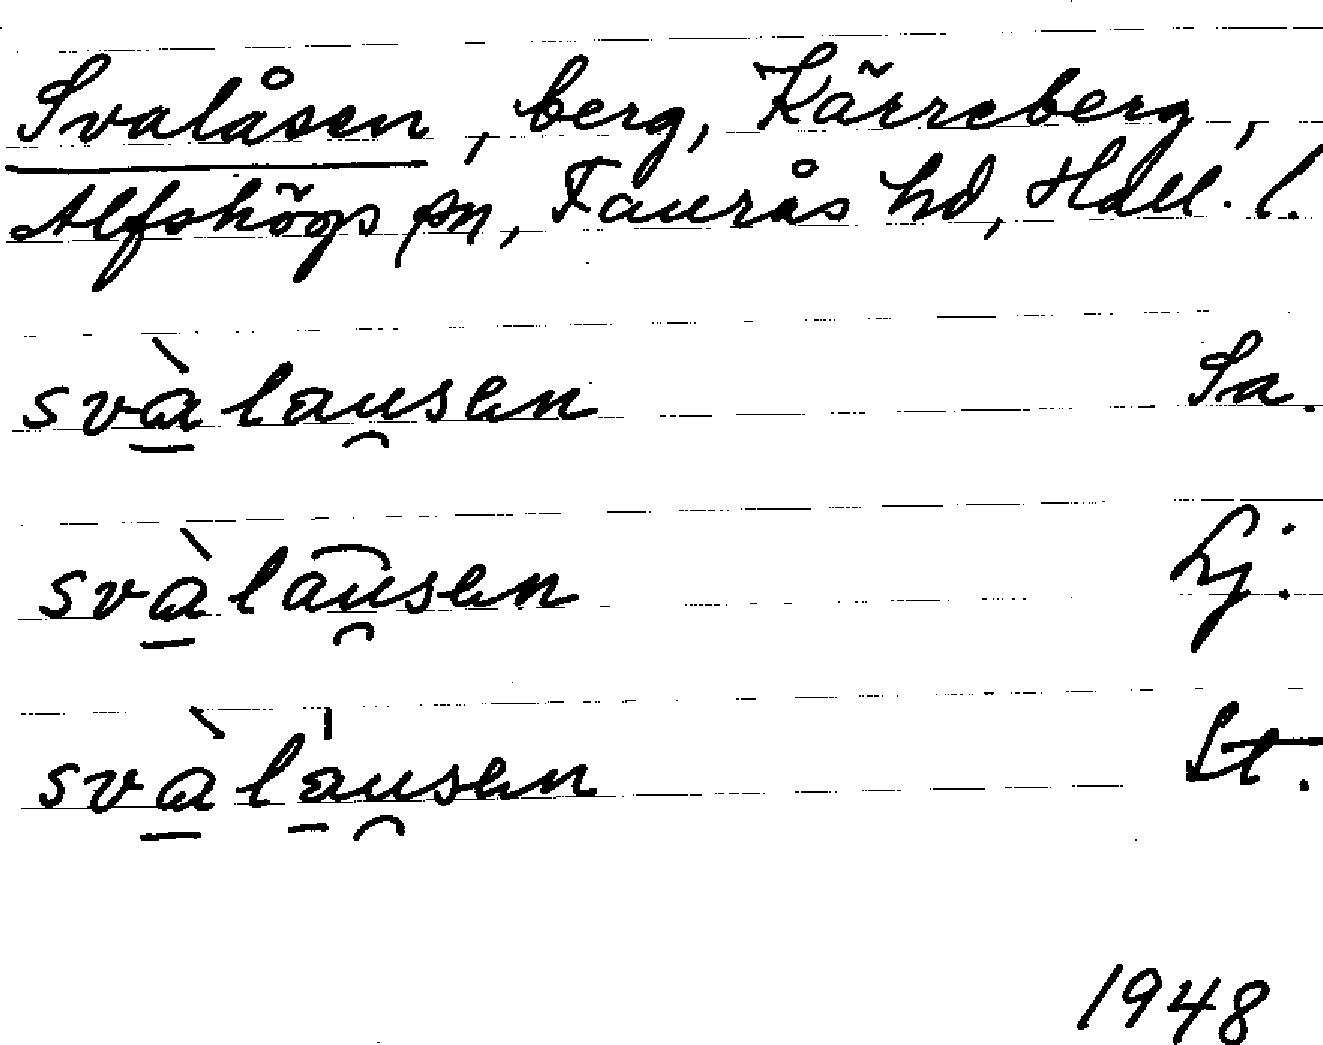 Svalåsen, berg, Kärreberg,
Alfshögs sn, Faurås hd, Hall. l.
svàlau̯sen Sa.
svàlau̯sen Lj.
svàlau̯sen St.
1948